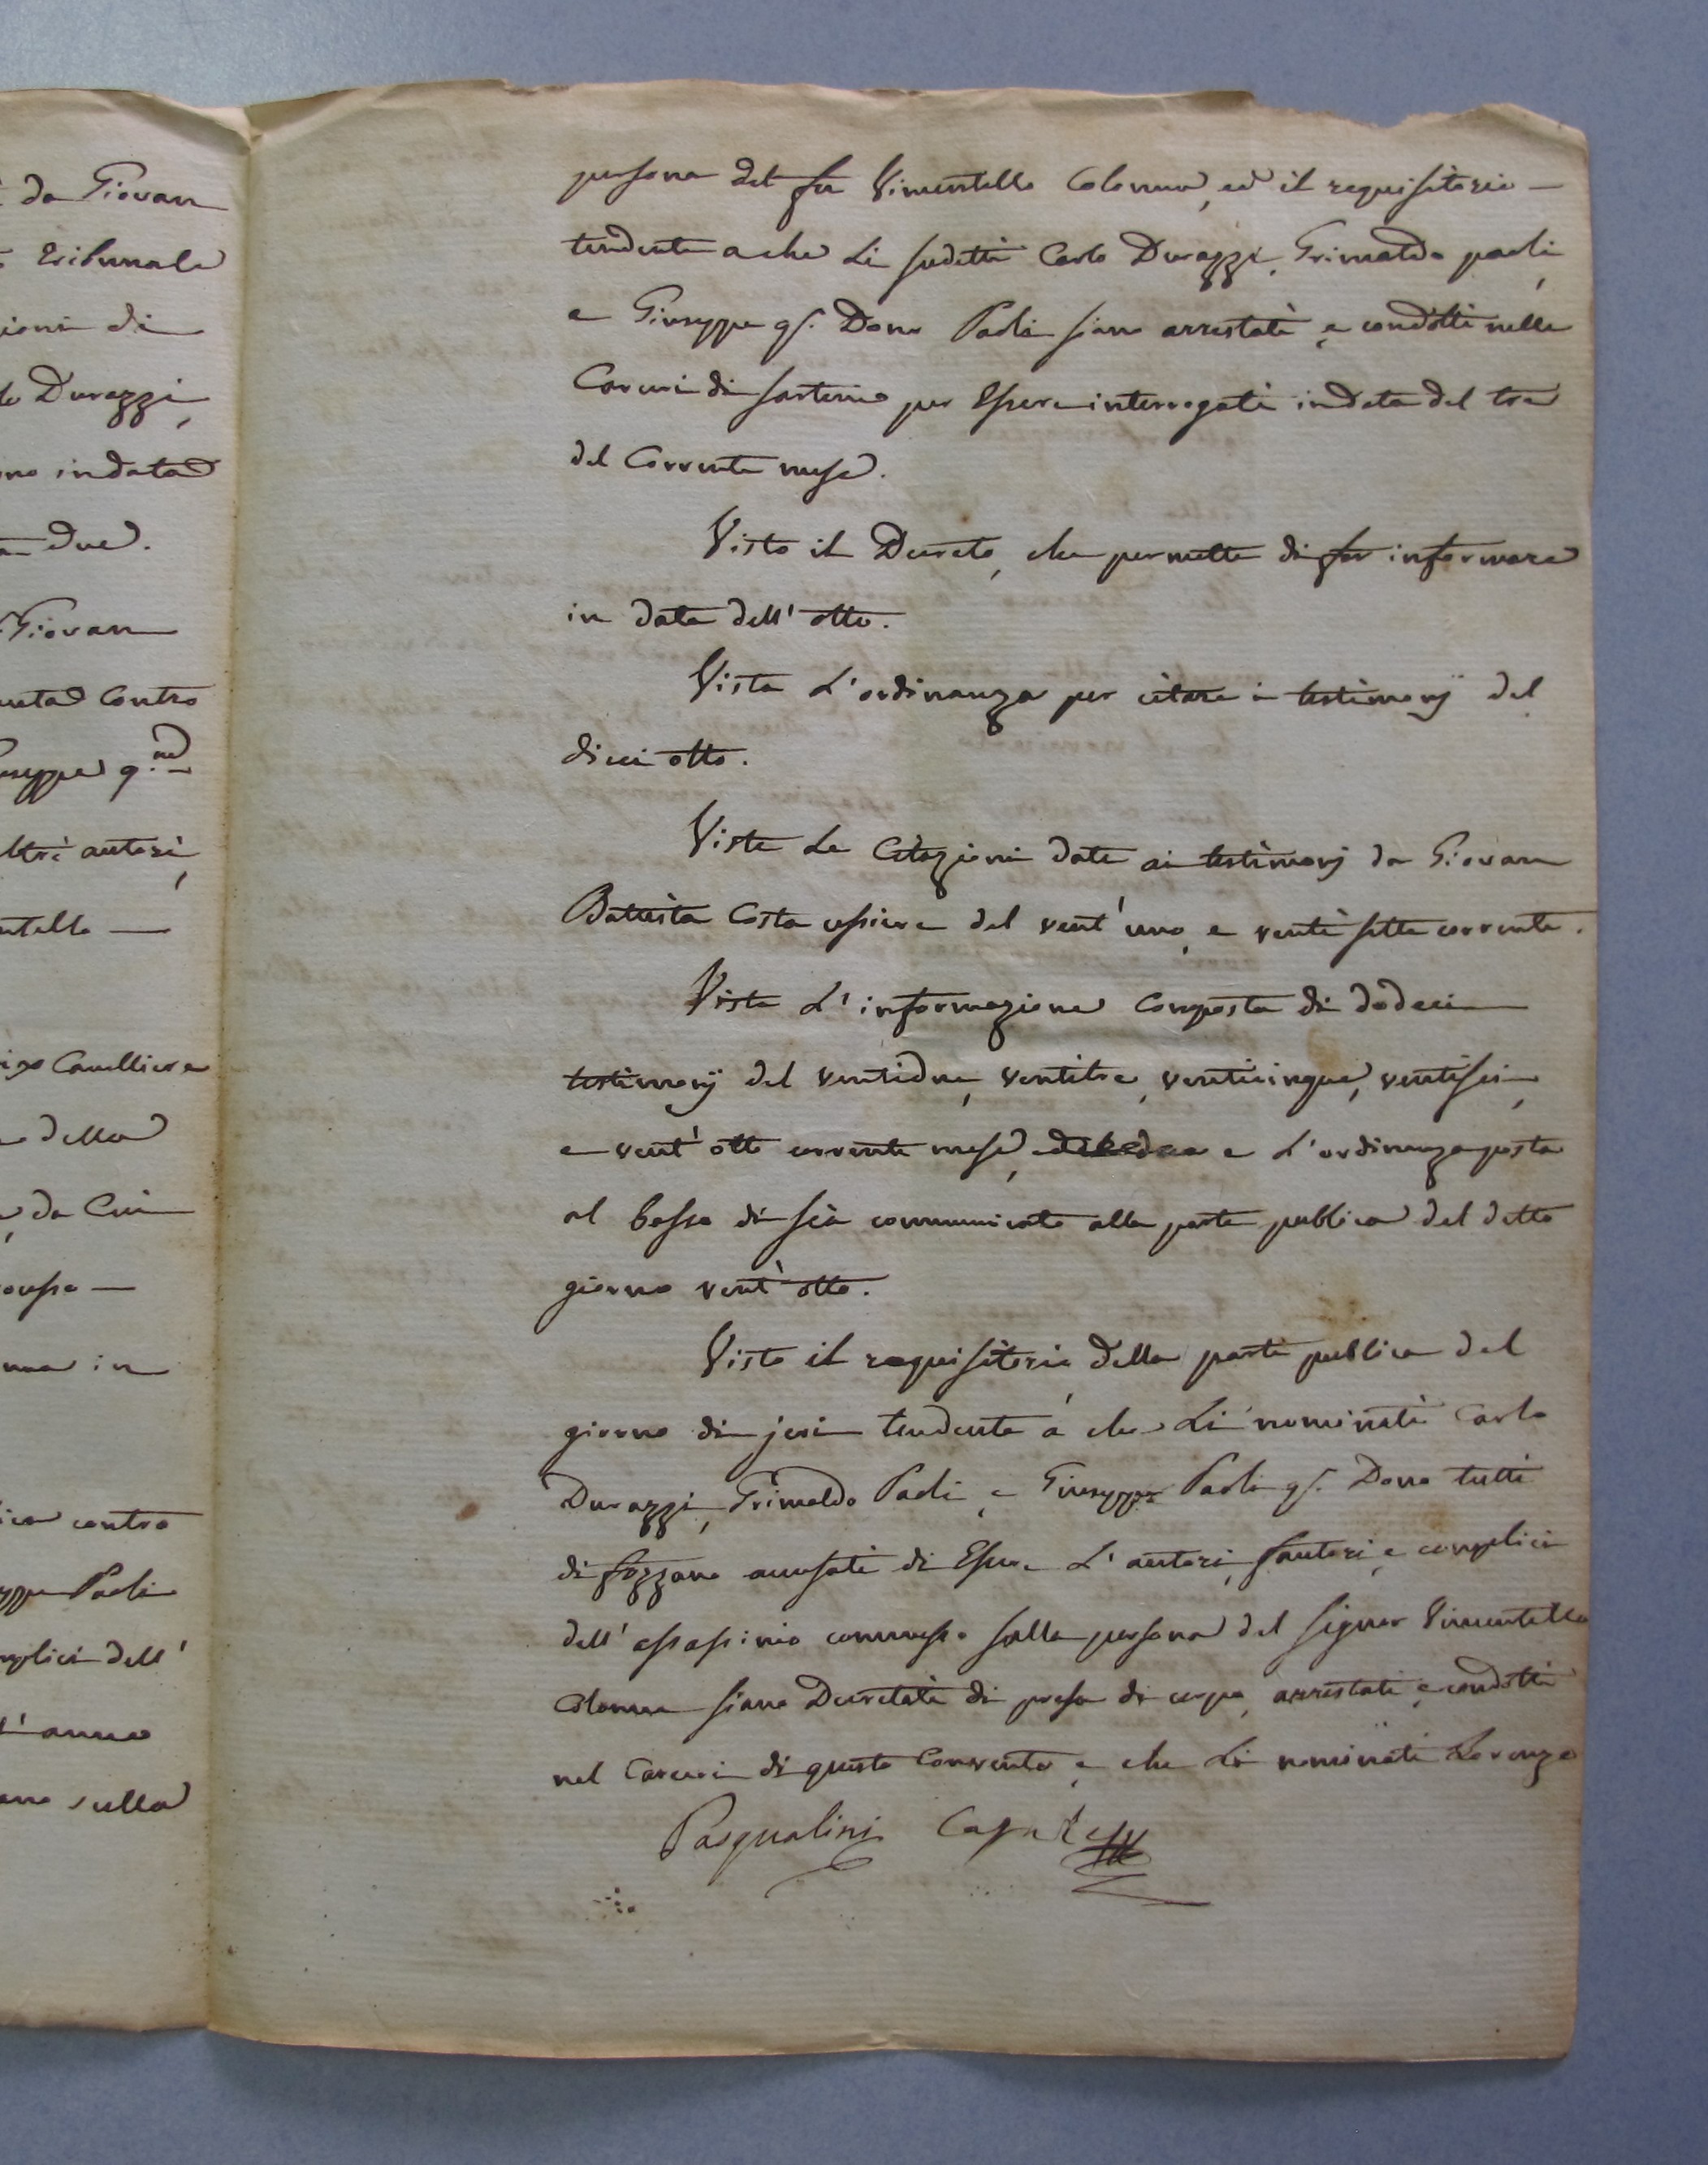 da Giovan
tribunale
ioni di
Durazzi,
indata
due.
Giovan
contro
useppe q.m
ltri autori,
ntello
Cavalliere
della
da Cui
ousse
in
contro
Paoli
mplici dell'
l'anno
sulla
persona del fu Vimentello Colonna, ed il requisitorio
tendente a che Li sudetti Carlo Durazzi, Grimaldo paoli,
e Giuseppe qs. Dono Paoli siano arrestati, e condotti nelle
Carceri di sartene per Essere interrogati in data del tre
del Corrente mese.
Visto il Decreto, che permette di far informare
in data dell' otto.
Vista L'ordinanza per citare i testimonij del
dieci otto.
Viste Le Citazioni date ai testimonj da Giovan
Battista Costa usciere del vent'uno, e venti sette corrente.
Vista L'informazione composta di dodeci
testimonij del ventidue, ventitre, venticinque, ventisei,
e vent'otto corrente mese, e L'ordinanza posta
al basso di sia communicato alla parte publica del detto
giorno vent'otto.
Visto il requisitorio della parte publica del
giorno di jeri tendente á che Li nominati Carlo
Durazzi, Grimaldo Paoli, e Giuseppe Paoli qs. Dono tutti
di fozzano accusati di Essere L'autori, fautori, e complici
dell' assassinio commesso sulla persona del signor Vimentello
Colonna siano Decretati di presa di corpo, arrestati, e condotti
nel Carceri di questo Convento, e che Li nominati Lorenzo
Pasqualini